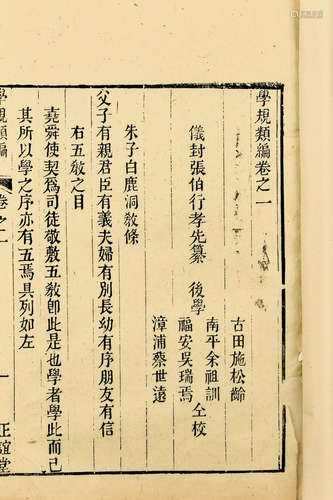 學規類編卷之一
古田施松齡
南平余祖訓
儀封張伯行孝先纂　後學　　仝校
福安吳瑞焉
漳浦蔡世遠
朱子白鹿洞教條
父子有親君臣有義夫婦有別長幼有序朋友有信
右五教之目
堯舜使契爲司徒敬敷五教卽此是也學者學此而已
其所以學之序亦有五焉具列如左
學規類編
卷之一
一
正誼堂